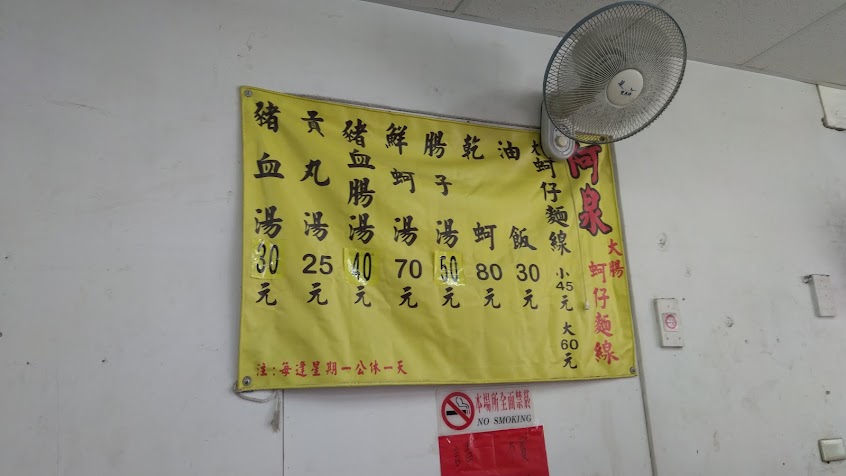 阿泉
大腸
蚵仔麵線
大
蚵仔麵線 小45元 大60元
油飯30元
乾蚵80元
腸子湯50元
鮮蚵湯70元
豬血腸湯40元
貢丸湯25元
豬血湯30元
注:每逢星期一公休一天
本場所全面禁菸
NO SMOKING